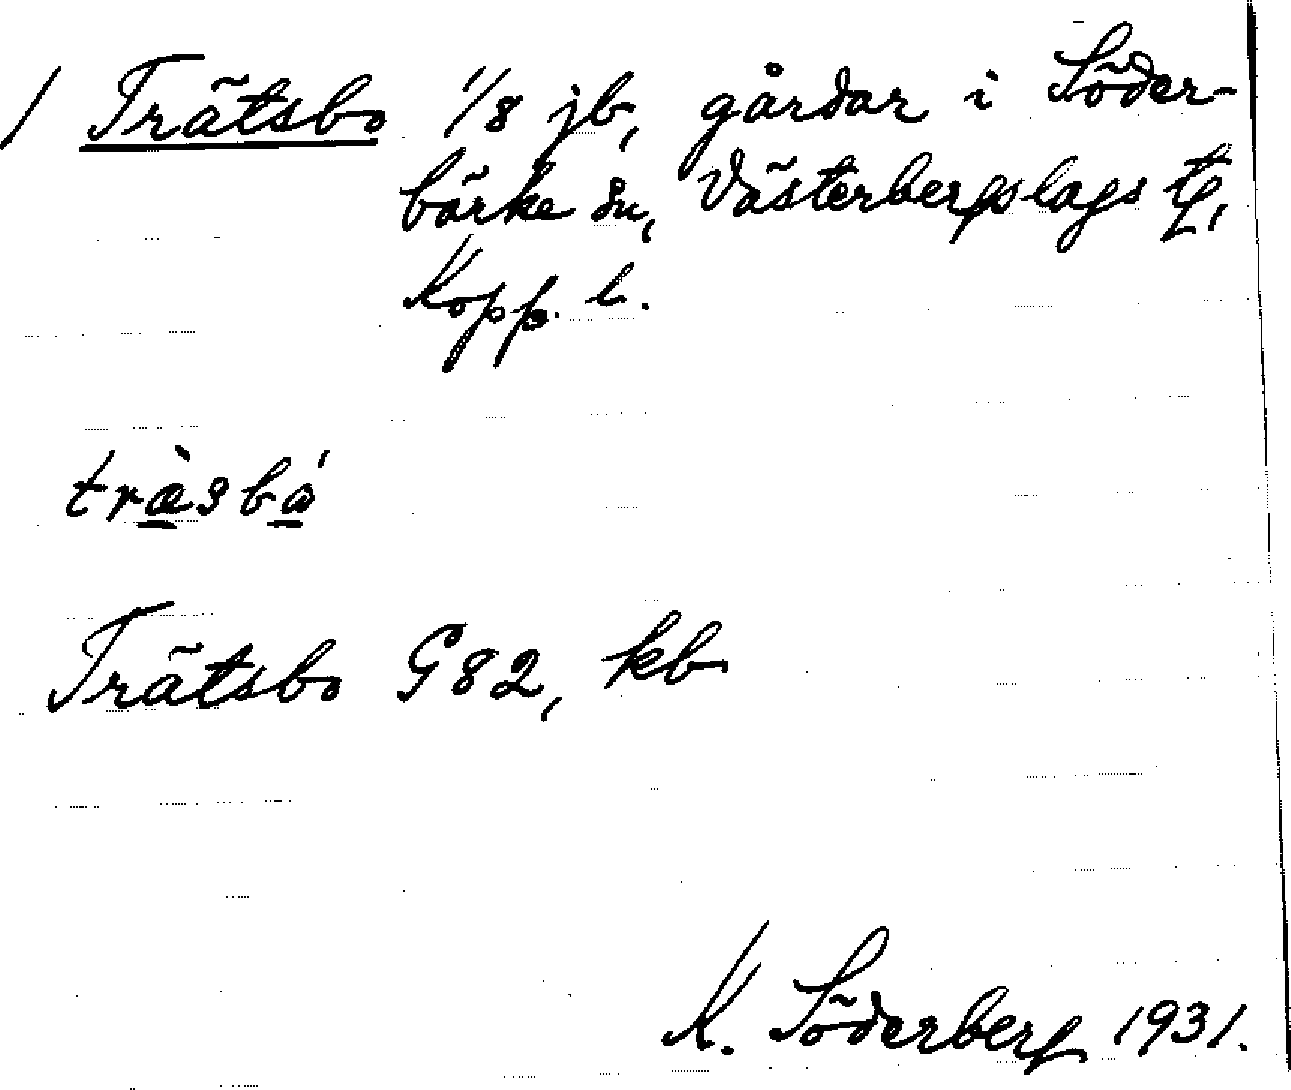 / Trätsbo 1/8 jb, gårdar i Söder-
bärke sn, Västerbergslags tg,
Kopp. l.
träsbå
Trätsbo G82, kb
K. Söderberg 1931.